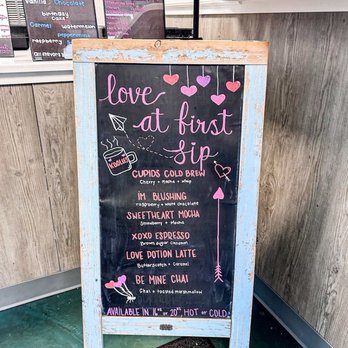 vanilla chocolate
birthday
cake
Carmel watermelon
raspberry peppermint
love
at first
sip
CUPIDS COLD BREW
Cherry + Mocha + Whip
I'M BLUSHING
raspberry + white chocolate
SWEETHEART MOCHA
Strawberry + Mocha
XOXO ESPRESSO
Brown sugar cinnamon
LOVE POTION LATTE
Butterscotch + Caramel
BE MINE CHAI
Chai + toasted marshmallow
AVAILABLE IN 16oz or 20oz, HOT or COLD